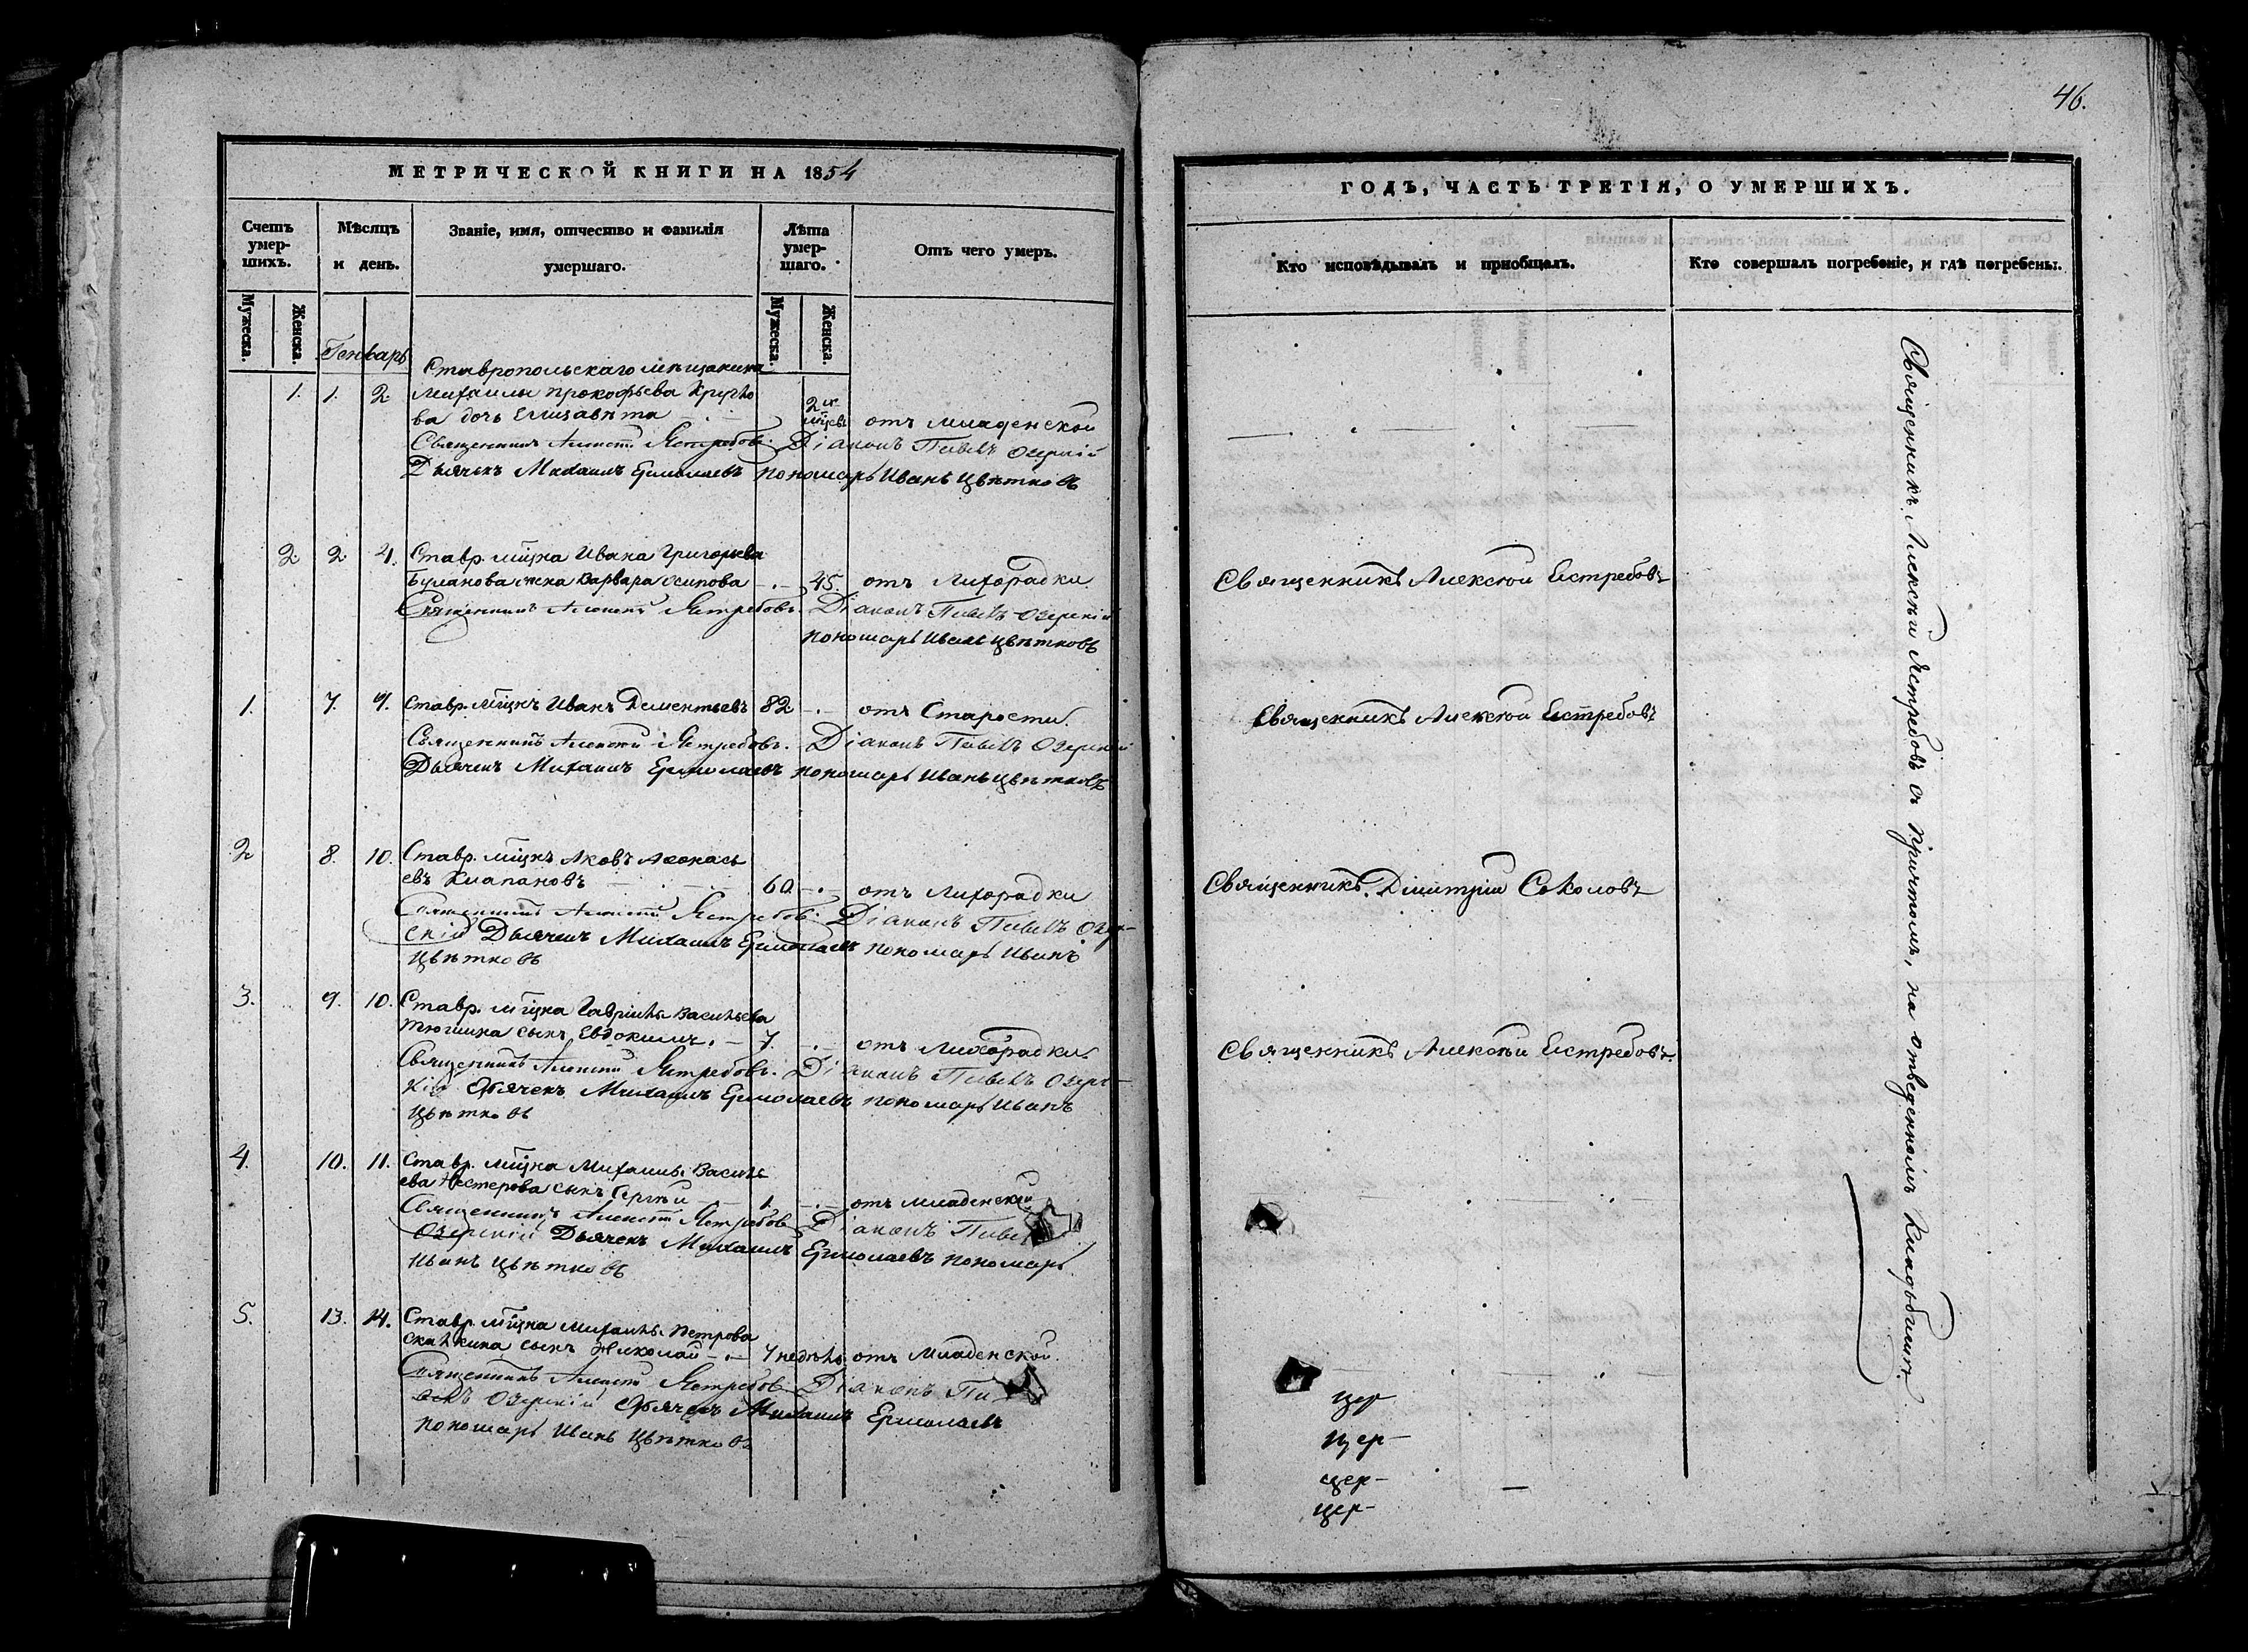 46.
МЕТРИЧЕСКОЙ КНИГИ НА 1854
Счетъ умер-шихъ.
Мѣсяцъ и день.
Званіе, имя, отчество и фамилія умершаго.
Лѣта умер-шаго.
Отъ чего умеръ.
Мужеска. Женска.
Мужеска. Женска.
Генварь
Ставропольскаго мѣщанина
1. 1. 2. Михаилы Прокофьева
ва дочь Елисавѣта 2 отъ младенской
Священникъ Алексѣй Ястребовъ. Діаконъ Павелъ Озерскій
Дьячекъ Михаилъ Ермолаевъ пономарь Иванъ Цвѣтковъ
2 2 4. Ставр. мѣщна Ивана Григорьева
Буланова жена Варвара Осипова 45. отъ Лихорадки
Священникъ Алексѣй Ястребовъ. Діаконъ Павелъ Озерскій
пономарь Иванъ Цвѣтковъ
1. 7. 9. Ставр. мѣщнъ Иванъ Дементьевъ 82 отъ Старости.
Священникъ Алексѣй Ястребовъ. Діаконъ Павелъ Озерскій
Дьячекъ Михаилъ Ермолаевъ пономарь Иванъ Цвѣтковъ
2 8. 10. Ставр. мѣщнъ Яковъ Аѳонась
евъ Клапановъ 60 отъ Лихорадки
Священникъ Алексѣй Ястребовъ. Діаконъ Павелъ Озер-
скій Дьячекъ Михаилъ Ермолаевъ пономарь Иванъ
Цвѣтковъ
3. 9. 10. Ставр. мѣщна Гаврилы Васильева
Тюгина сынъ Евдокимъ. 7. отъ Лихорадки.
Священникъ Алексѣй Ястребовъ. Діаконъ Павелъ Озерс-
кій Дьячекъ Михаилъ Ермолаевъ пономарь Иванъ
Цвѣтковъ
4. 10. 11. Ставр. мѣщна Михаилы Василь
ева Нестерова сынъ Сергѣй 1. отъ младенской
Священникъ Алексѣй Ястребовъ Діаконъ Павелъ
Озерскій Дьячекъ Михаилъ Ермолаевъ пономарь
Иванъ Цвѣтковъ
5. 13. 14. Ставр. мѣщна Михаилы Петрова
сынъ Николай 4 недѣль отъ Младенской.
Священникъ Алексѣй Ястребовъ Діаконъ Па
велъ Озерскій Дьячекъ Михаилъ Ермолаевъ
пономарь Иванъ Цвѣтковъ
ГОДЪ, ЧАСТЬ ТРЕТІЯ, О УМЕРШИХЪ.
Кто исповѣдывалъ и пріобщалъ.
Кто совершалъ погребеніе, и гдѣ погребены.
Священникъ Алексѣй Естребовъ
Священникъ Алексѣй Естребовъ
Священникъ Димитрій Соколовъ
Священникъ Алексѣй Естребовъ.
цер
цер-
цер-
цер-
Священникъ Алексѣй Ястребовъ съ причтомъ, на отведенномъ Кладьбищѣ.